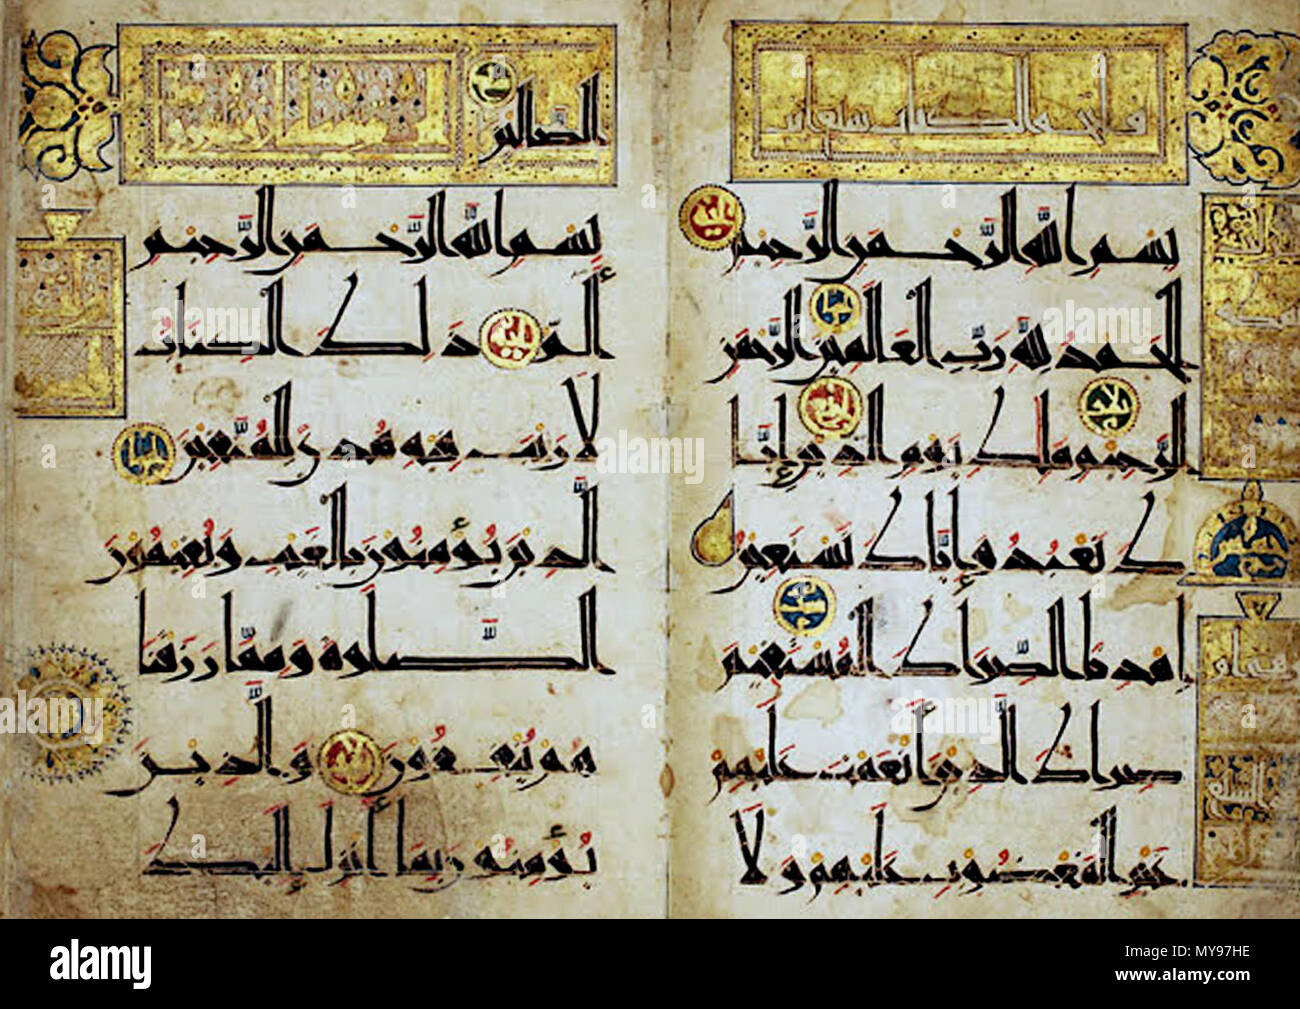 فاتحة الكتاب سبع آيات
بِسْمِ اللَّهِ الرَّحْمَنِ الرَّحِيمِ
الْحَمْدُ لِلَّهِ رَبِّ الْعَالَمِينَ الرَّحْمَنِ
الرَّحِيمِ مَلِكِ يَوْمِ الدِّينِ إِيَّا
كَ نَعْبُدُ وَإِيَّاكَ نَسْتَعِينُ
اهْدِنَا الصِّرَاطَ الْمُسْتَقِيمَ
صِرَاطَ الَّذِينَ أَنْعَمْتَ عَلَيْهِمْ
غَيْرِ الْمَغْضُوبِ عَلَيْهِمْ وَلَا
الضَّالِّينَ
بِسْمِ اللَّهِ الرَّحْمَنِ الرَّحِيمِ
الٓمٓ ذَلِكَ الْكِتَابُ
لَا رَيْبَ فِيهِ هُدًى لِلْمُتَّقِينَ
الَّذِينَ يُؤْمِنُونَ بِالْغَيْبِ وَيُقِيمُونَ
الصَّلَوةَ وَمِمَّا رَزَقْنَا
هُمْ يُنْفِقُونَ وَالَّذِينَ
يُؤْمِنُونَ بِمَا أُنْزِلَ إِلَيْكَ
alamy
Image ID: MY97HE
www.alamy.com